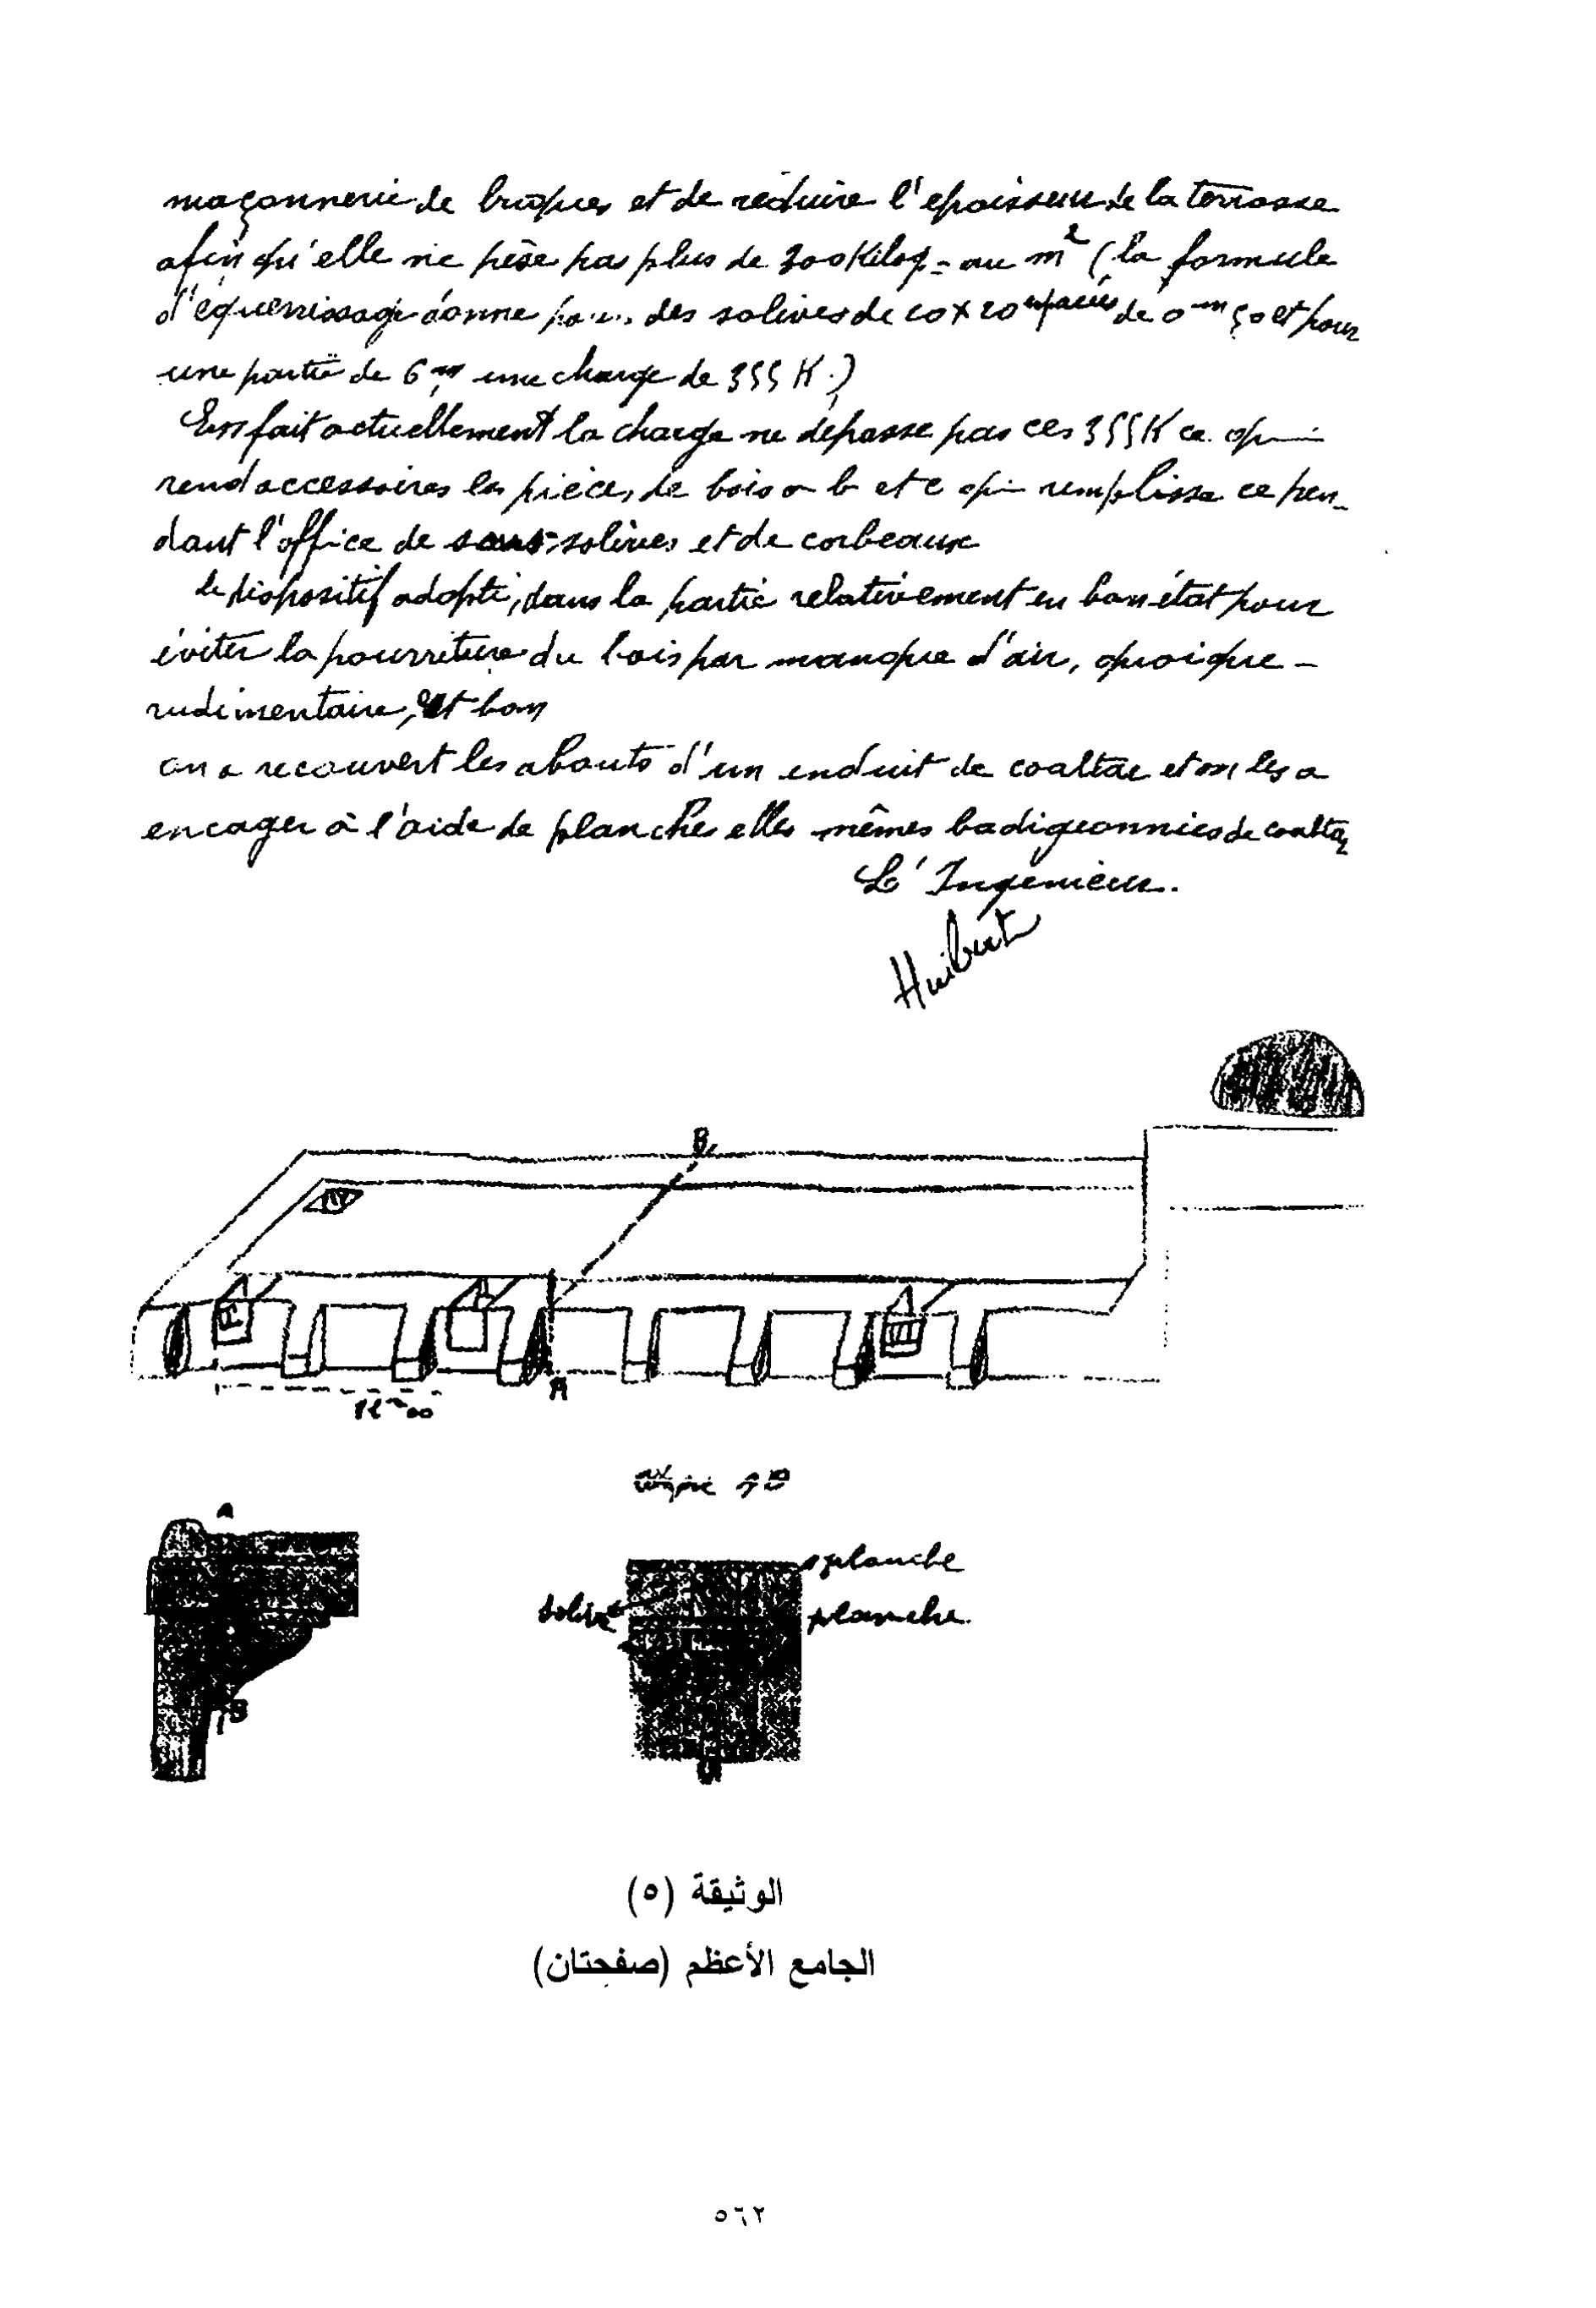 maçonnerie de briques et de reduire l'epaisseur de la terrasse
afin qu'elle ne pèse pas plus de 300 Kilog = au m² (la formule
d'équerrissage donne pour des solives de 20 x 20 espacées de 0 m 50 et pour
une portée de 6 m une charge de 355 K.)
En fait actuellement la charge ne dépasse pas ces 355 K ce qui
rend accessoires les pièces de bois a b et c qui remplisse cepen-
dant l'office de sous-solives et de corbeaux
le dispositif adopté, dans la partie relativement en bon état pour
éviter la pourriture du bois par manque d'air, quoique -
rudimentaire, est bon
on a recouvert les abouts d'un enduit de coaltar et on les a
encager à l'aide de planches elles mêmes badigeonnées de coaltar
L'Ingénieur.
Huibert
B
A
A
planche
solive
planche
B
الوثيقة (٥)
الجامع الأعظم (صفحتان)
٥٦٢